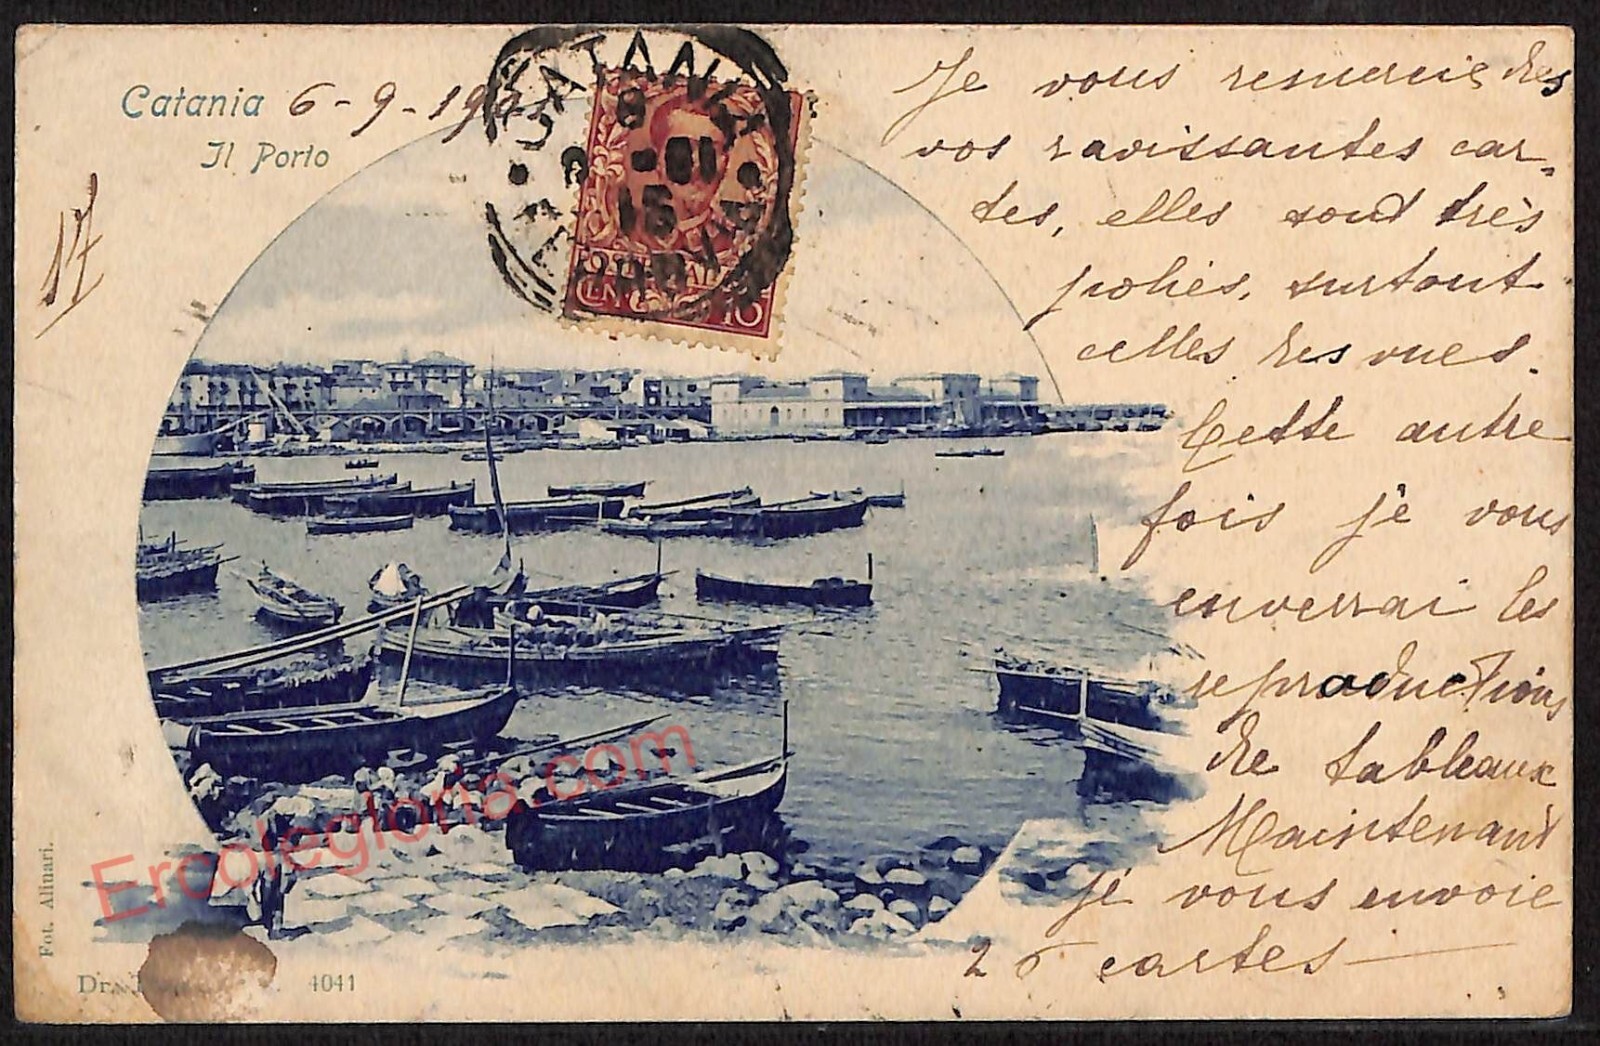 Catania 6-9-1901
Il Porto
CATANIA
8
9-01
15
POSTE ITALIANE
CENT. 10
Je vous remercie des
vos ravissantes car-
tes, elles sont très
jolies, surtout
celles des vues.
Cette autre
fois je vous
enverrai les
reproductions
de tableaux
Maintenant
je vous envoie
26 cartes
Fot. Alinari.
Dr.
4041
Ercolegloria.com